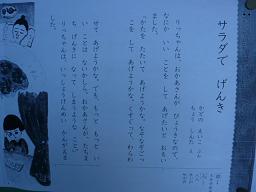 サラダで げんき
かどの えいこ ぶん
ちょう しんた え
りっちゃんは、おかあさんが びょうきなので、
なにか いい ことを して あげたいと おもい
ました。
「かたを たたいて あげようかな。なぞなぞごっ
こを して あげようかな。くすぐって、わらわ
せて あげようかな。でも、もっと もっと い
い ことは ないかしら。おかあさんが、たちま
ち、げんきに なって しまうような こと。」
りっちゃんは、いっしょうけんめい かんがえま
した。